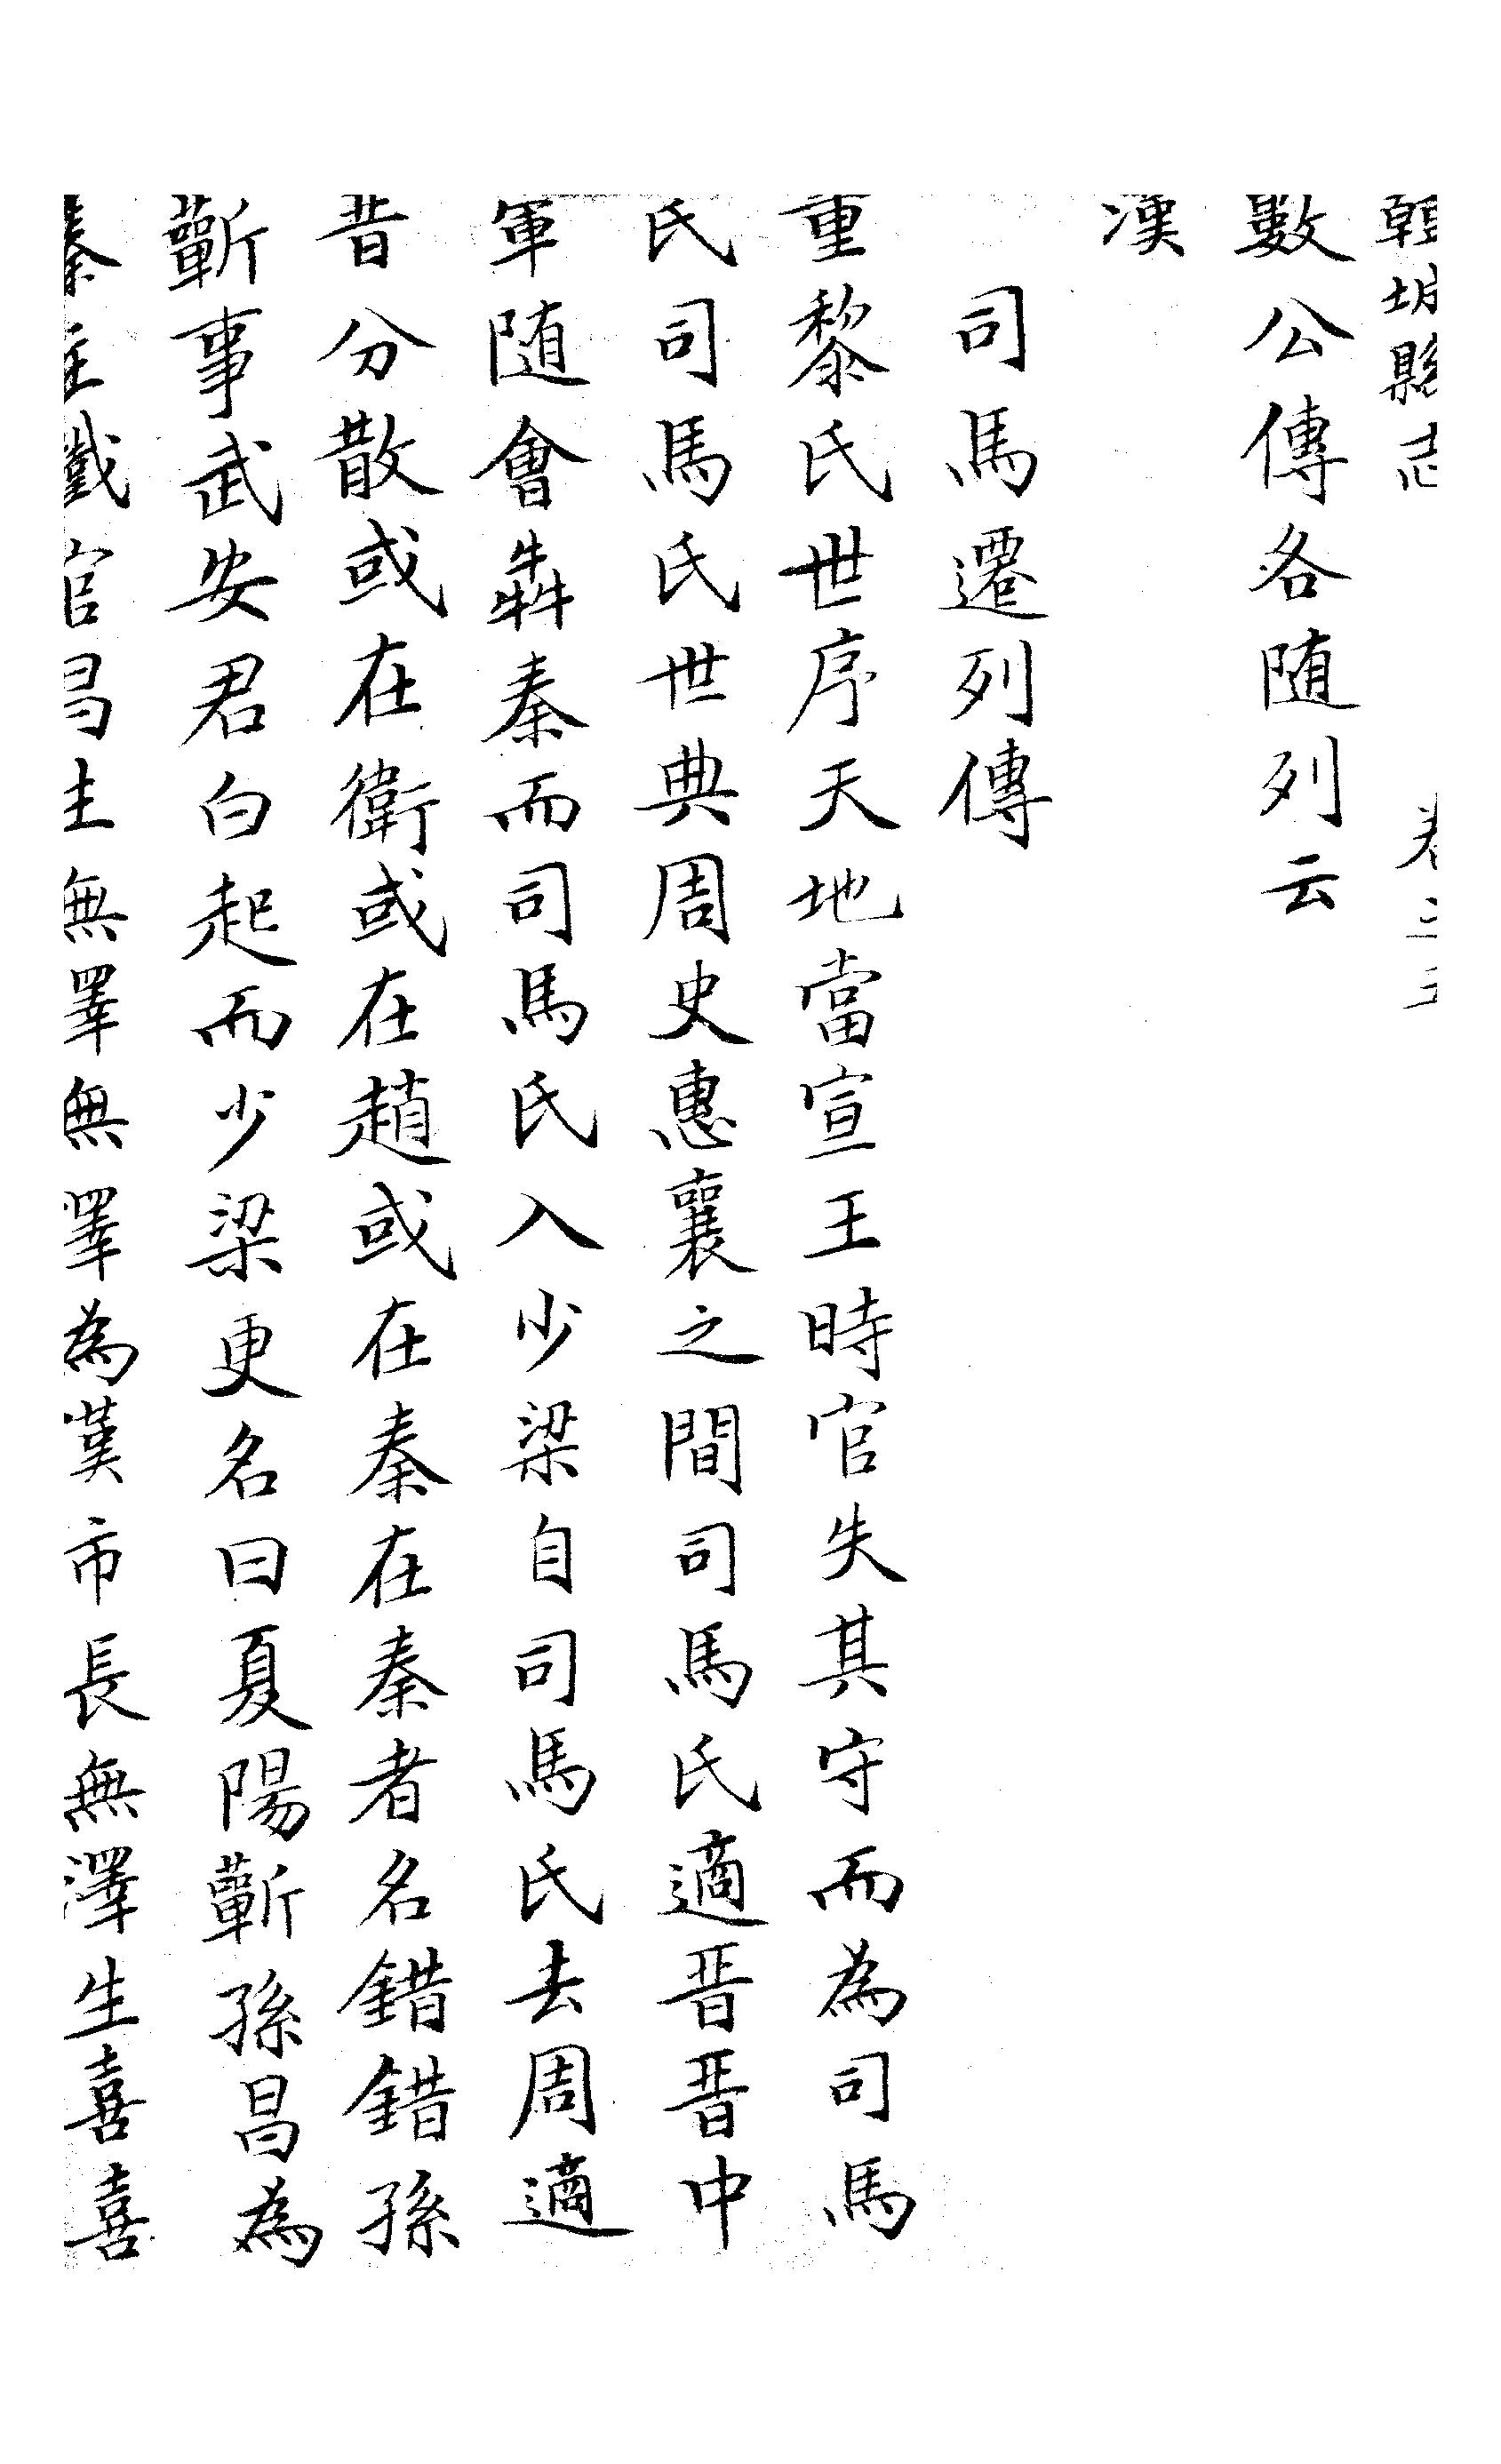 韓城縣志 卷
數公傳各随列云
漢
司馬遷列傳
重黎氏世序天地當宣王時官失其守而為司馬
氏司馬氏世典周史惠襄之間司馬氏適晋晋中
軍随會犇秦而司馬氏入少梁自司馬氏去周適
晋分散或在衛或在趙或在秦在秦者名錯錯孫
蘄事武安君白起而少梁更名曰夏陽蘄孫昌為
秦主鐵官昌生無澤無澤為漢市長無澤生喜喜